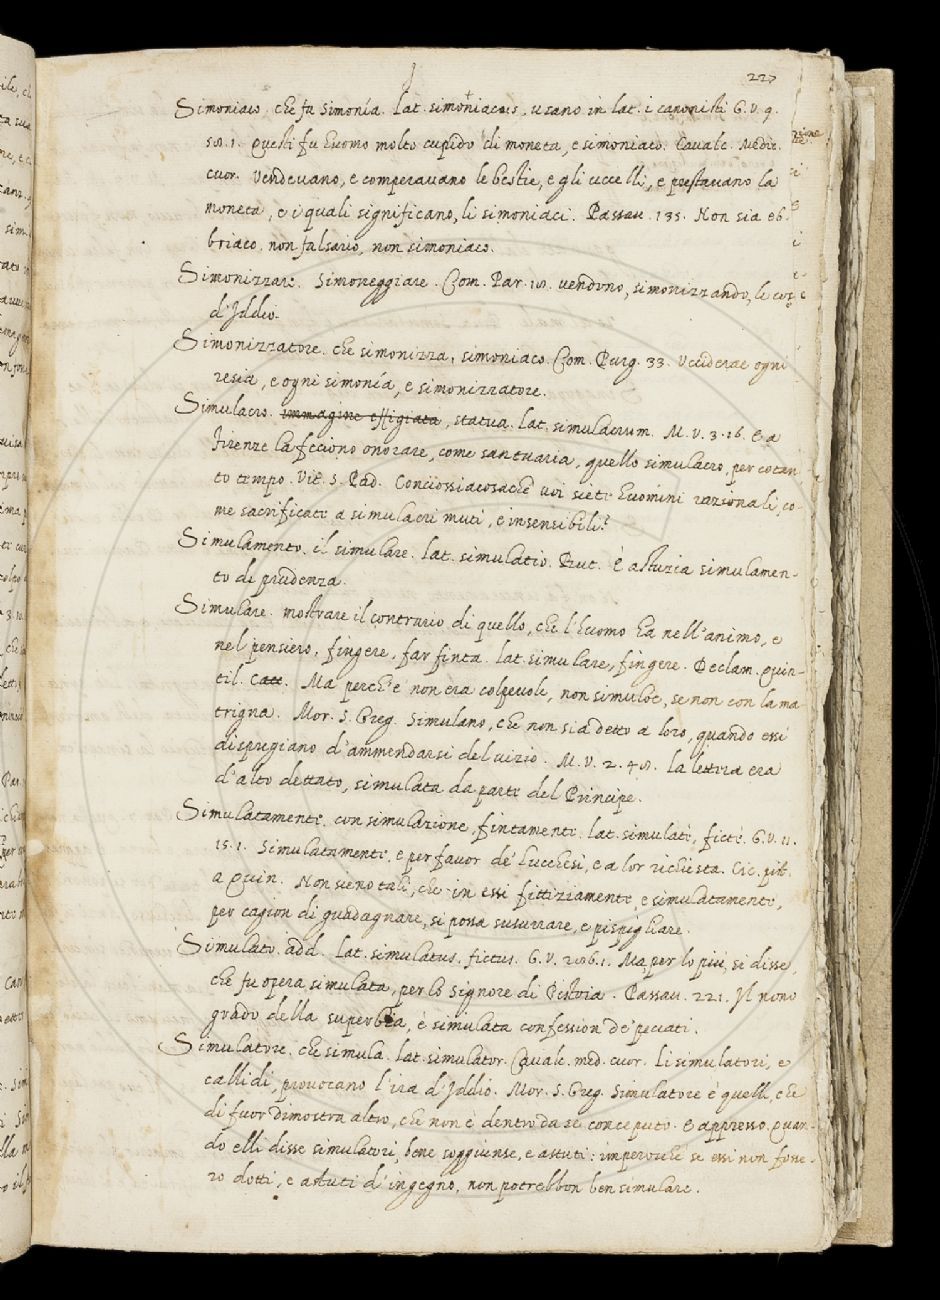 227
Simoniaco. che fa simonía. lat. simoniacus, usano in lat. i canonisti G. V. 9.
58. 1. Questi fu huomo molto cupido di moneta, e simoniaco. Cavalc. Medic.
cuor. vendevano, e comperavano le bestie, e gli uccelli, e prestavano la
moneta, e i quali significano, li simoniaci. Passav. 135. Non sia eb-
briaco, non falsario, non simoniaco.
Simonizzare. Simoneggiare. Com. Par. 18. vendono, simonizzando, le cose
d'Iddio.
Simonizzatore. che simonizza, simoniaco. Com. Purg. 33. Ucciderae ogni
resia, e ogni simonía, e simonizzatore.
Simulacro. immagine effigiata, statua. lat. simulacrum. M. V. 3. 16. E a
Firenze la feciono onorare, come santuaria, quello simulacro, per cotan-
to tempo. Vit. S. Pad. Conciossiacosachè voi siete huomini razionali, co-
me sacrificate a simulacri muti, e insensibili?
Simulamento. il simulare. lat. simulatio. Brut. è astuzia simulamen-
to di prudenza.
Simulare. mostrare il contrario di quello, che l'huomo ha nell'animo, e
nel pensiero, fingere, far finta. lat. simulare, fingere. Declam. Quin-
til. C. Ma perch'e' non era colpevole, non simulòe, se non con la ma
trigna. Mor. S. Greg. Simulano, che non sia detto a loro, quando essi
dispregiano d'ammendarsi del vizio. M. V. 2. 48. la lettera era
d'alto dettato, simulata da parte del Principe.
Simulatamente. con simulazione, fintamente. lat. simulatè, fictè. G. V. 11.
15. 1. Simulatamente, e per favor de' Lucchesi, e a lor richiesta. Cic. pist.
a Quin. Non sieno tali, che in essi fittiziamente, e simulatamente,
per cagion di guadagnare, si possa susurrare, e pispigliare.
Simulato. add. lat. simulatus, fictus. G. V. 286. 1. Ma per lo più, si disse,
che fu opera simulata, per lo Signore di Pistoia. Passav. 221. Il nono
grado della superbia, è simulata confession de' peccati.
Simulatore. che simula. lat. simulator. Cavalc. med. cuor. li simulatori, e
callidi, provocano l'ira d'Iddio. Mor. S. Greg. Simulatore è quelli, che
di fuor dimostra altro, che non è dentro da se conceputo. E appresso. Quan-
do elli disse simulatori, bene soggiunse, e astuti: imperocchè se essi non fosse-
ro dotti, e astuti d'ingegno, non potrebbon ben simulare.